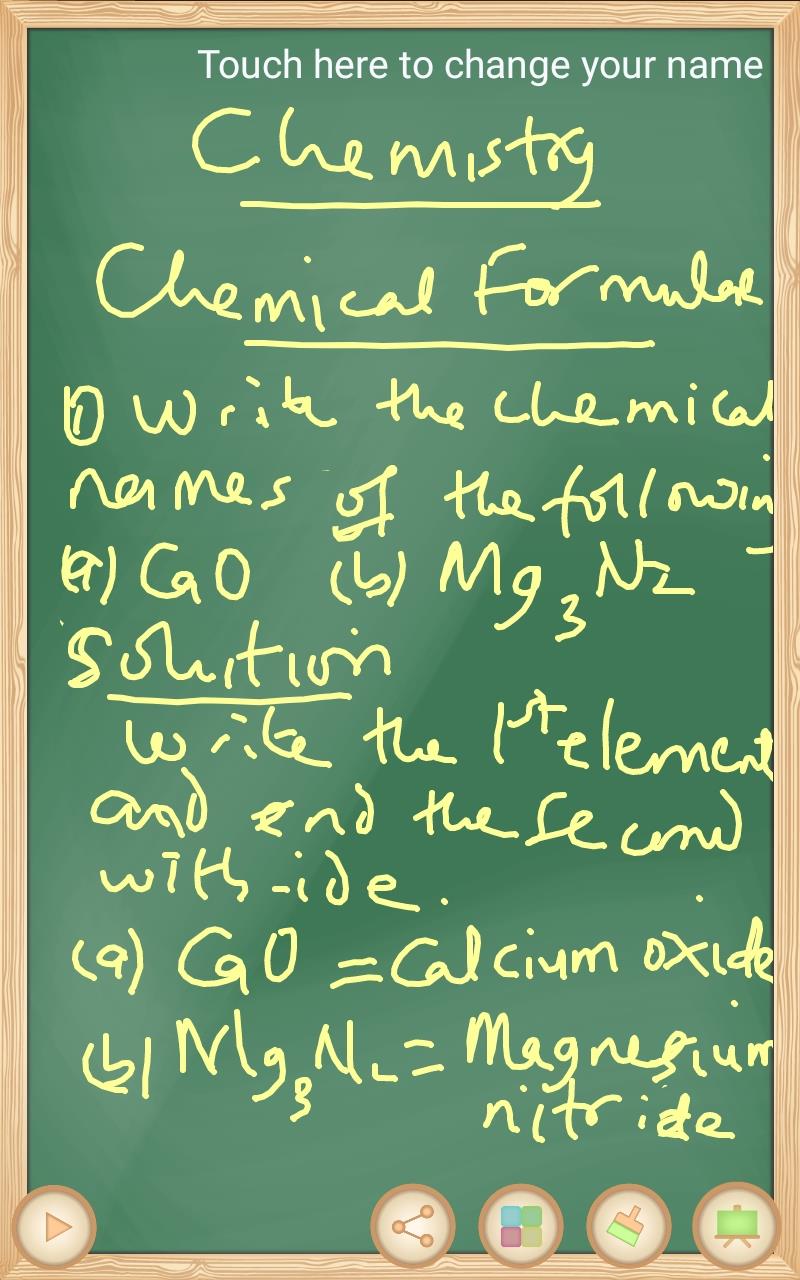 Touch here to change your name
Chemistry
Chemical Formulae
① Write the chemical
names of the following
(a) CaO (b) Mg₃N₂
Solution
Write the 1st element
and end the second
with -ide.
(a) CaO = Calcium oxide
(b) Mg₃N₂ = Magnesium
nitride